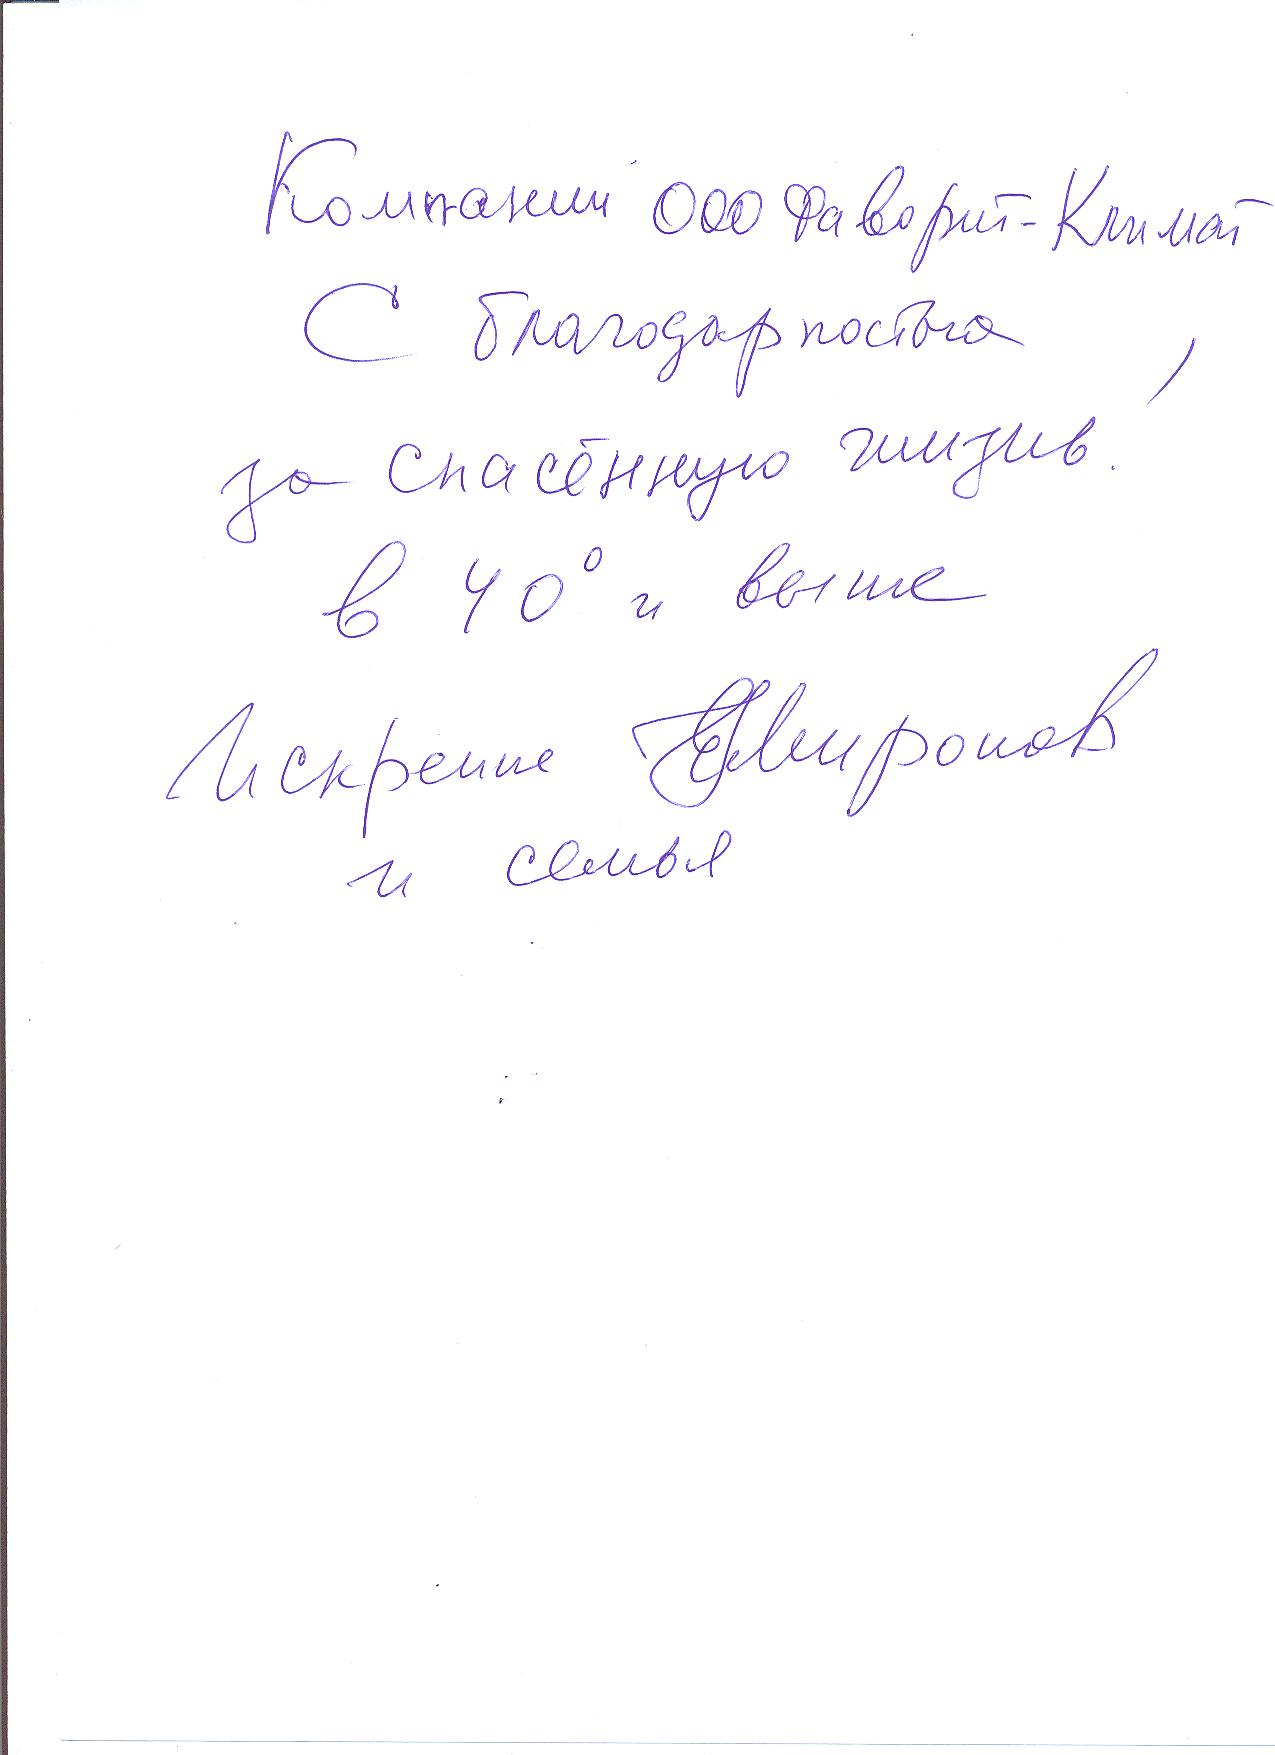 Компании ООО Фаворит-Климат
С благодарностью
за спасённую жизнь!
в 40° и выше
Искренне Е Миронов
и семья